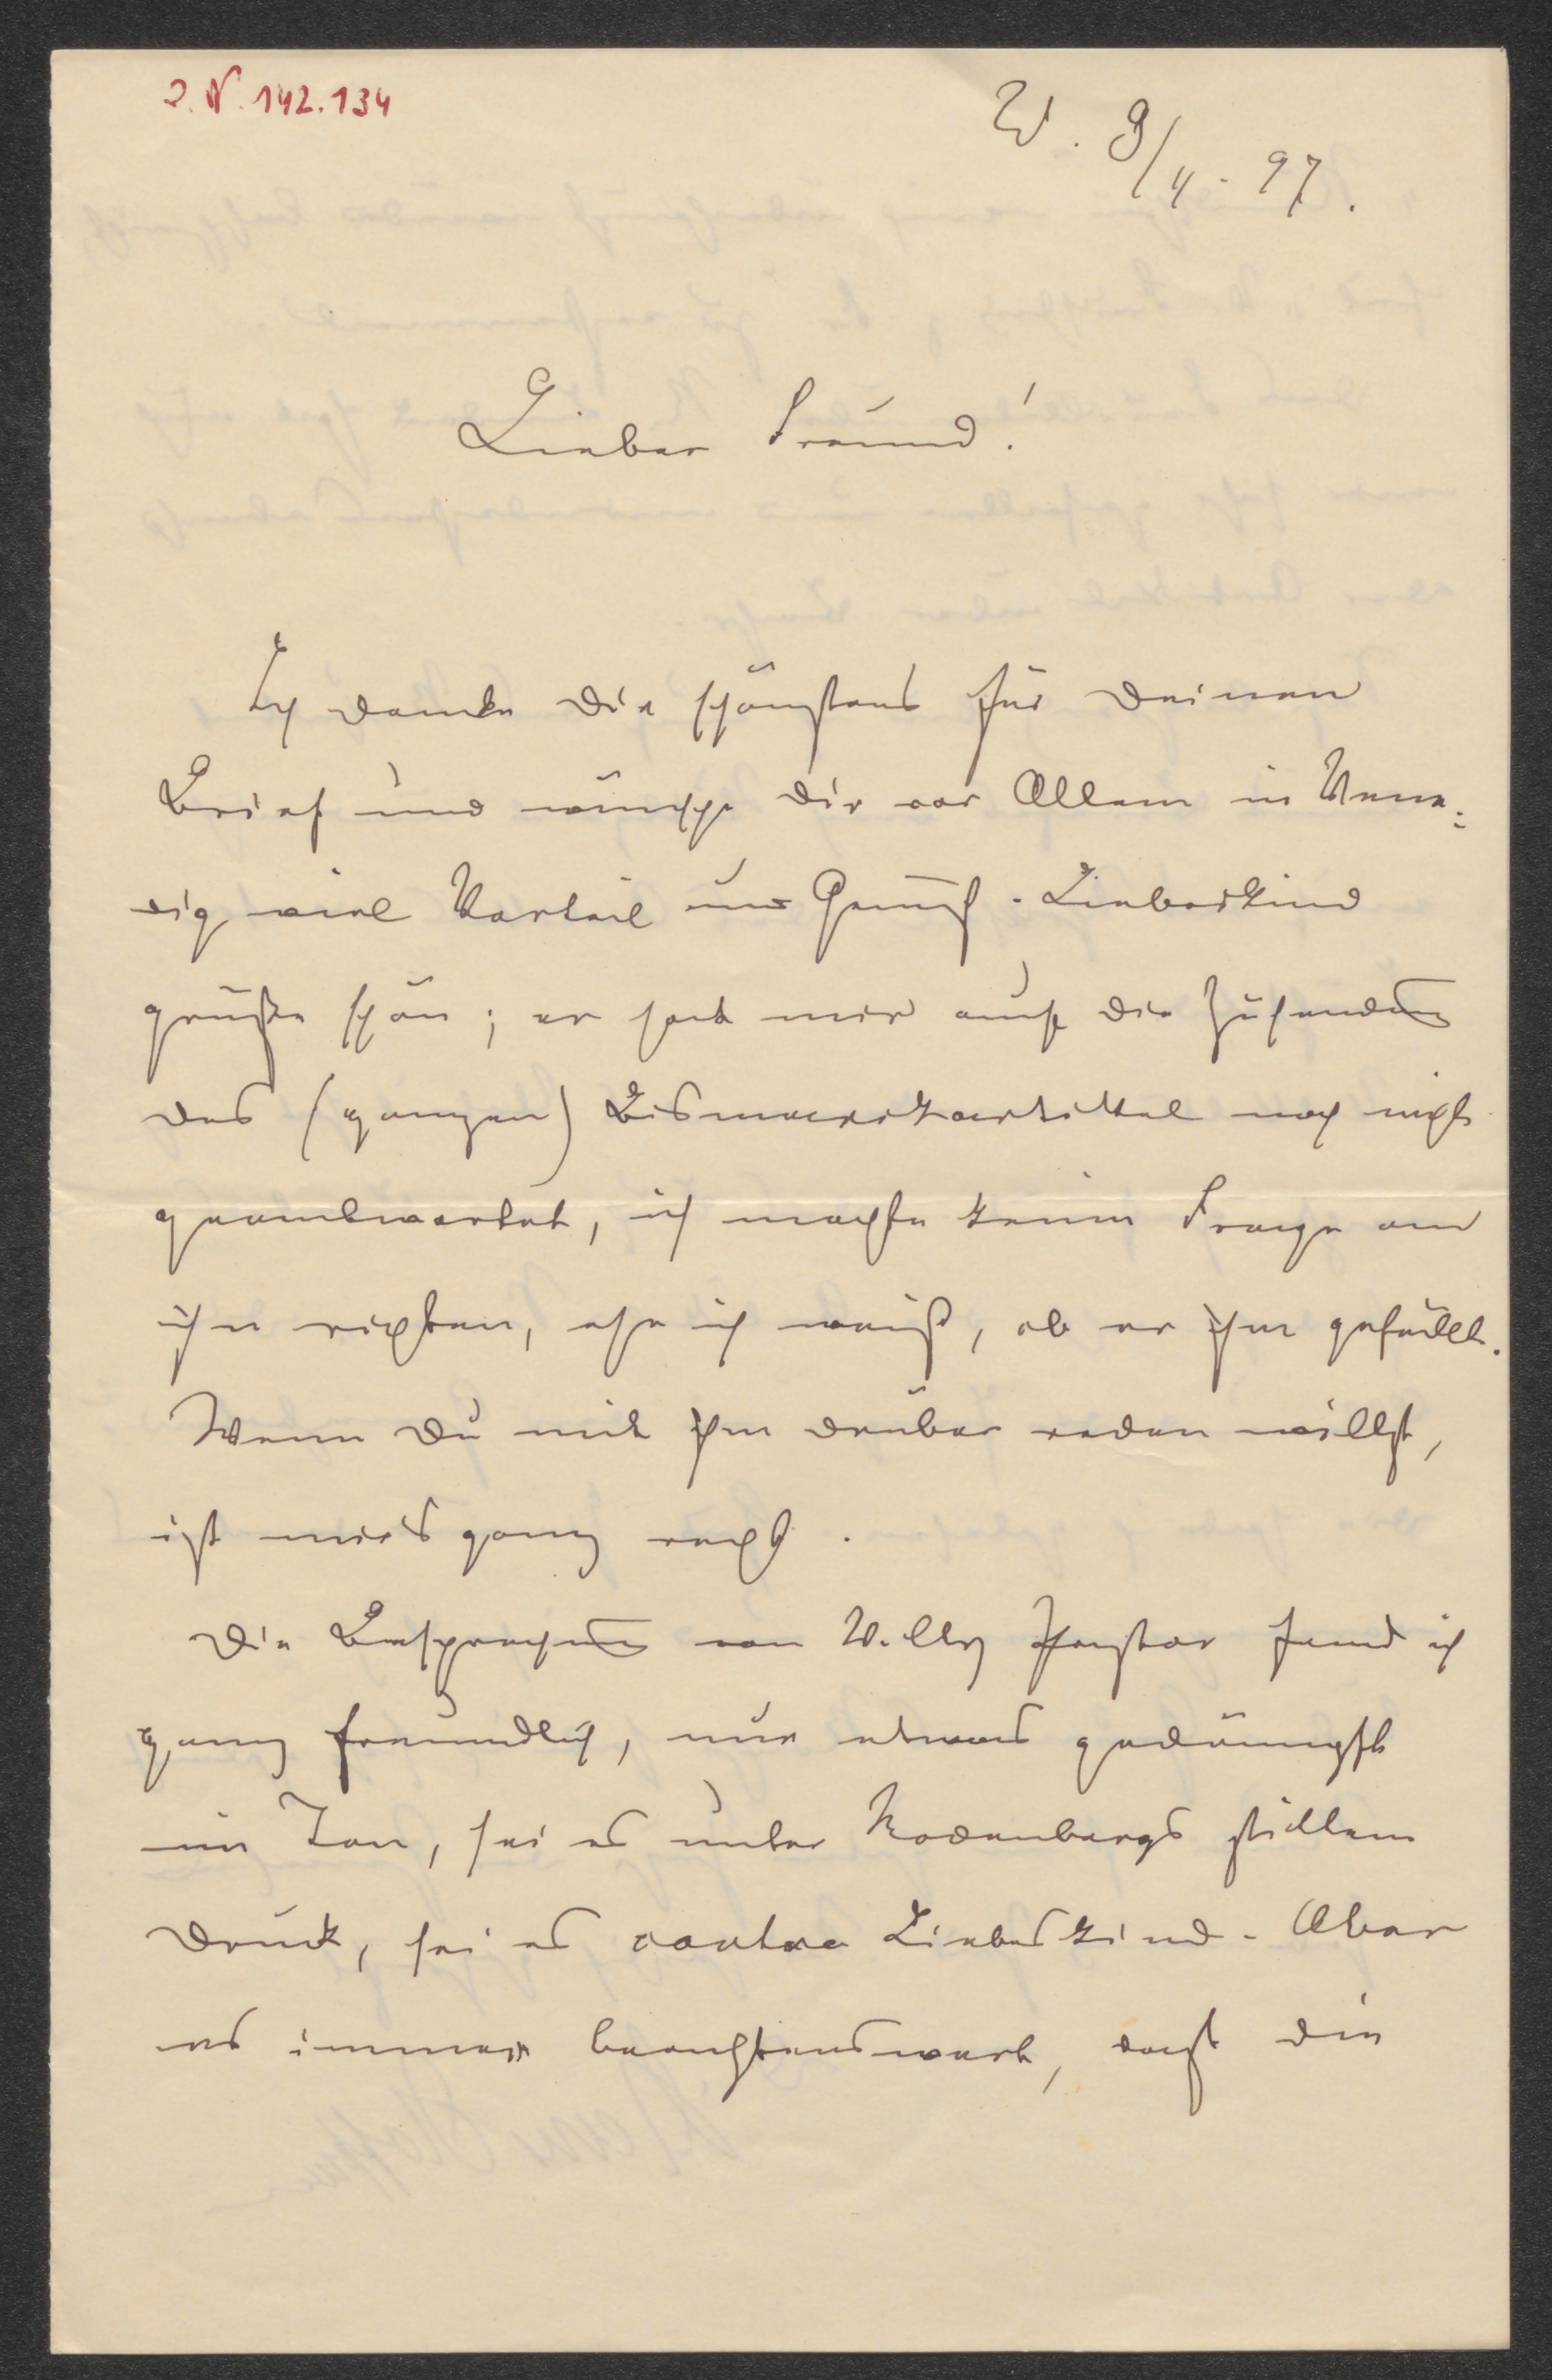 J. N. 142.134
W. 9/4. 97.
Lieber Freund!
Ich danke Dir schönstens für Deinen
Brief und wünsche Dir vor Allem in Vene-
dig viel Vorteil und Genuß. Liebeskind
grüße schön; er hat mir auf die Zusendung
des (ganzen) Bismarckartikel noch nicht
geantwortet, ich möchte keine Frage an
ihn richten, ehe ich weiß, ob er ihm gefällt.
Wenn Du mit ihm drüber reden willst,
ist mir's ganz recht.
Die Besprechung von Willy Pastor fand ich
ganz freundlich, nur etwas gedämpft
im Ton, sei es unter Rodenbergs stillem
Druck, sei es contra Liebeskind. Aber
es immer beachtenswert, daß die